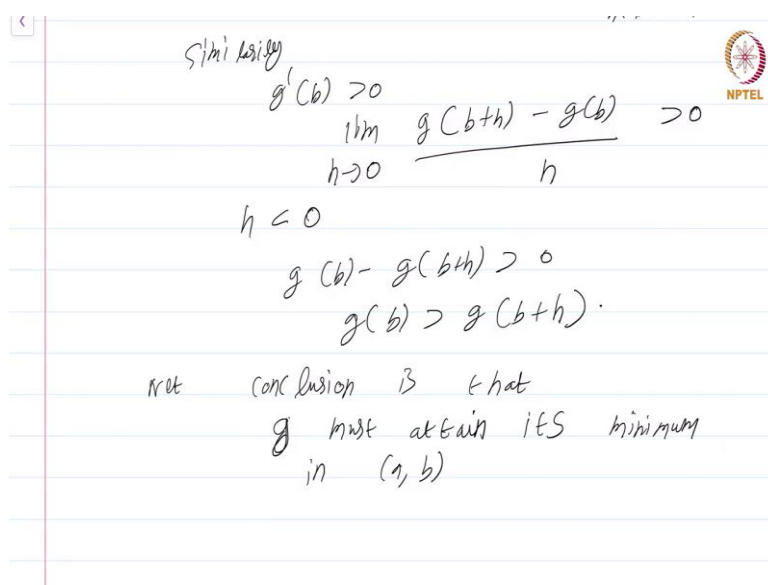 Similarly
g'(b) > 0
lim h→0 g(b+h) - g(b) / h > 0
h < 0
g(b) - g(b+h) > 0
g(b) > g(b+h).
Net conclusion is that
g must attain its minimum
in (a, b)
NPTEL